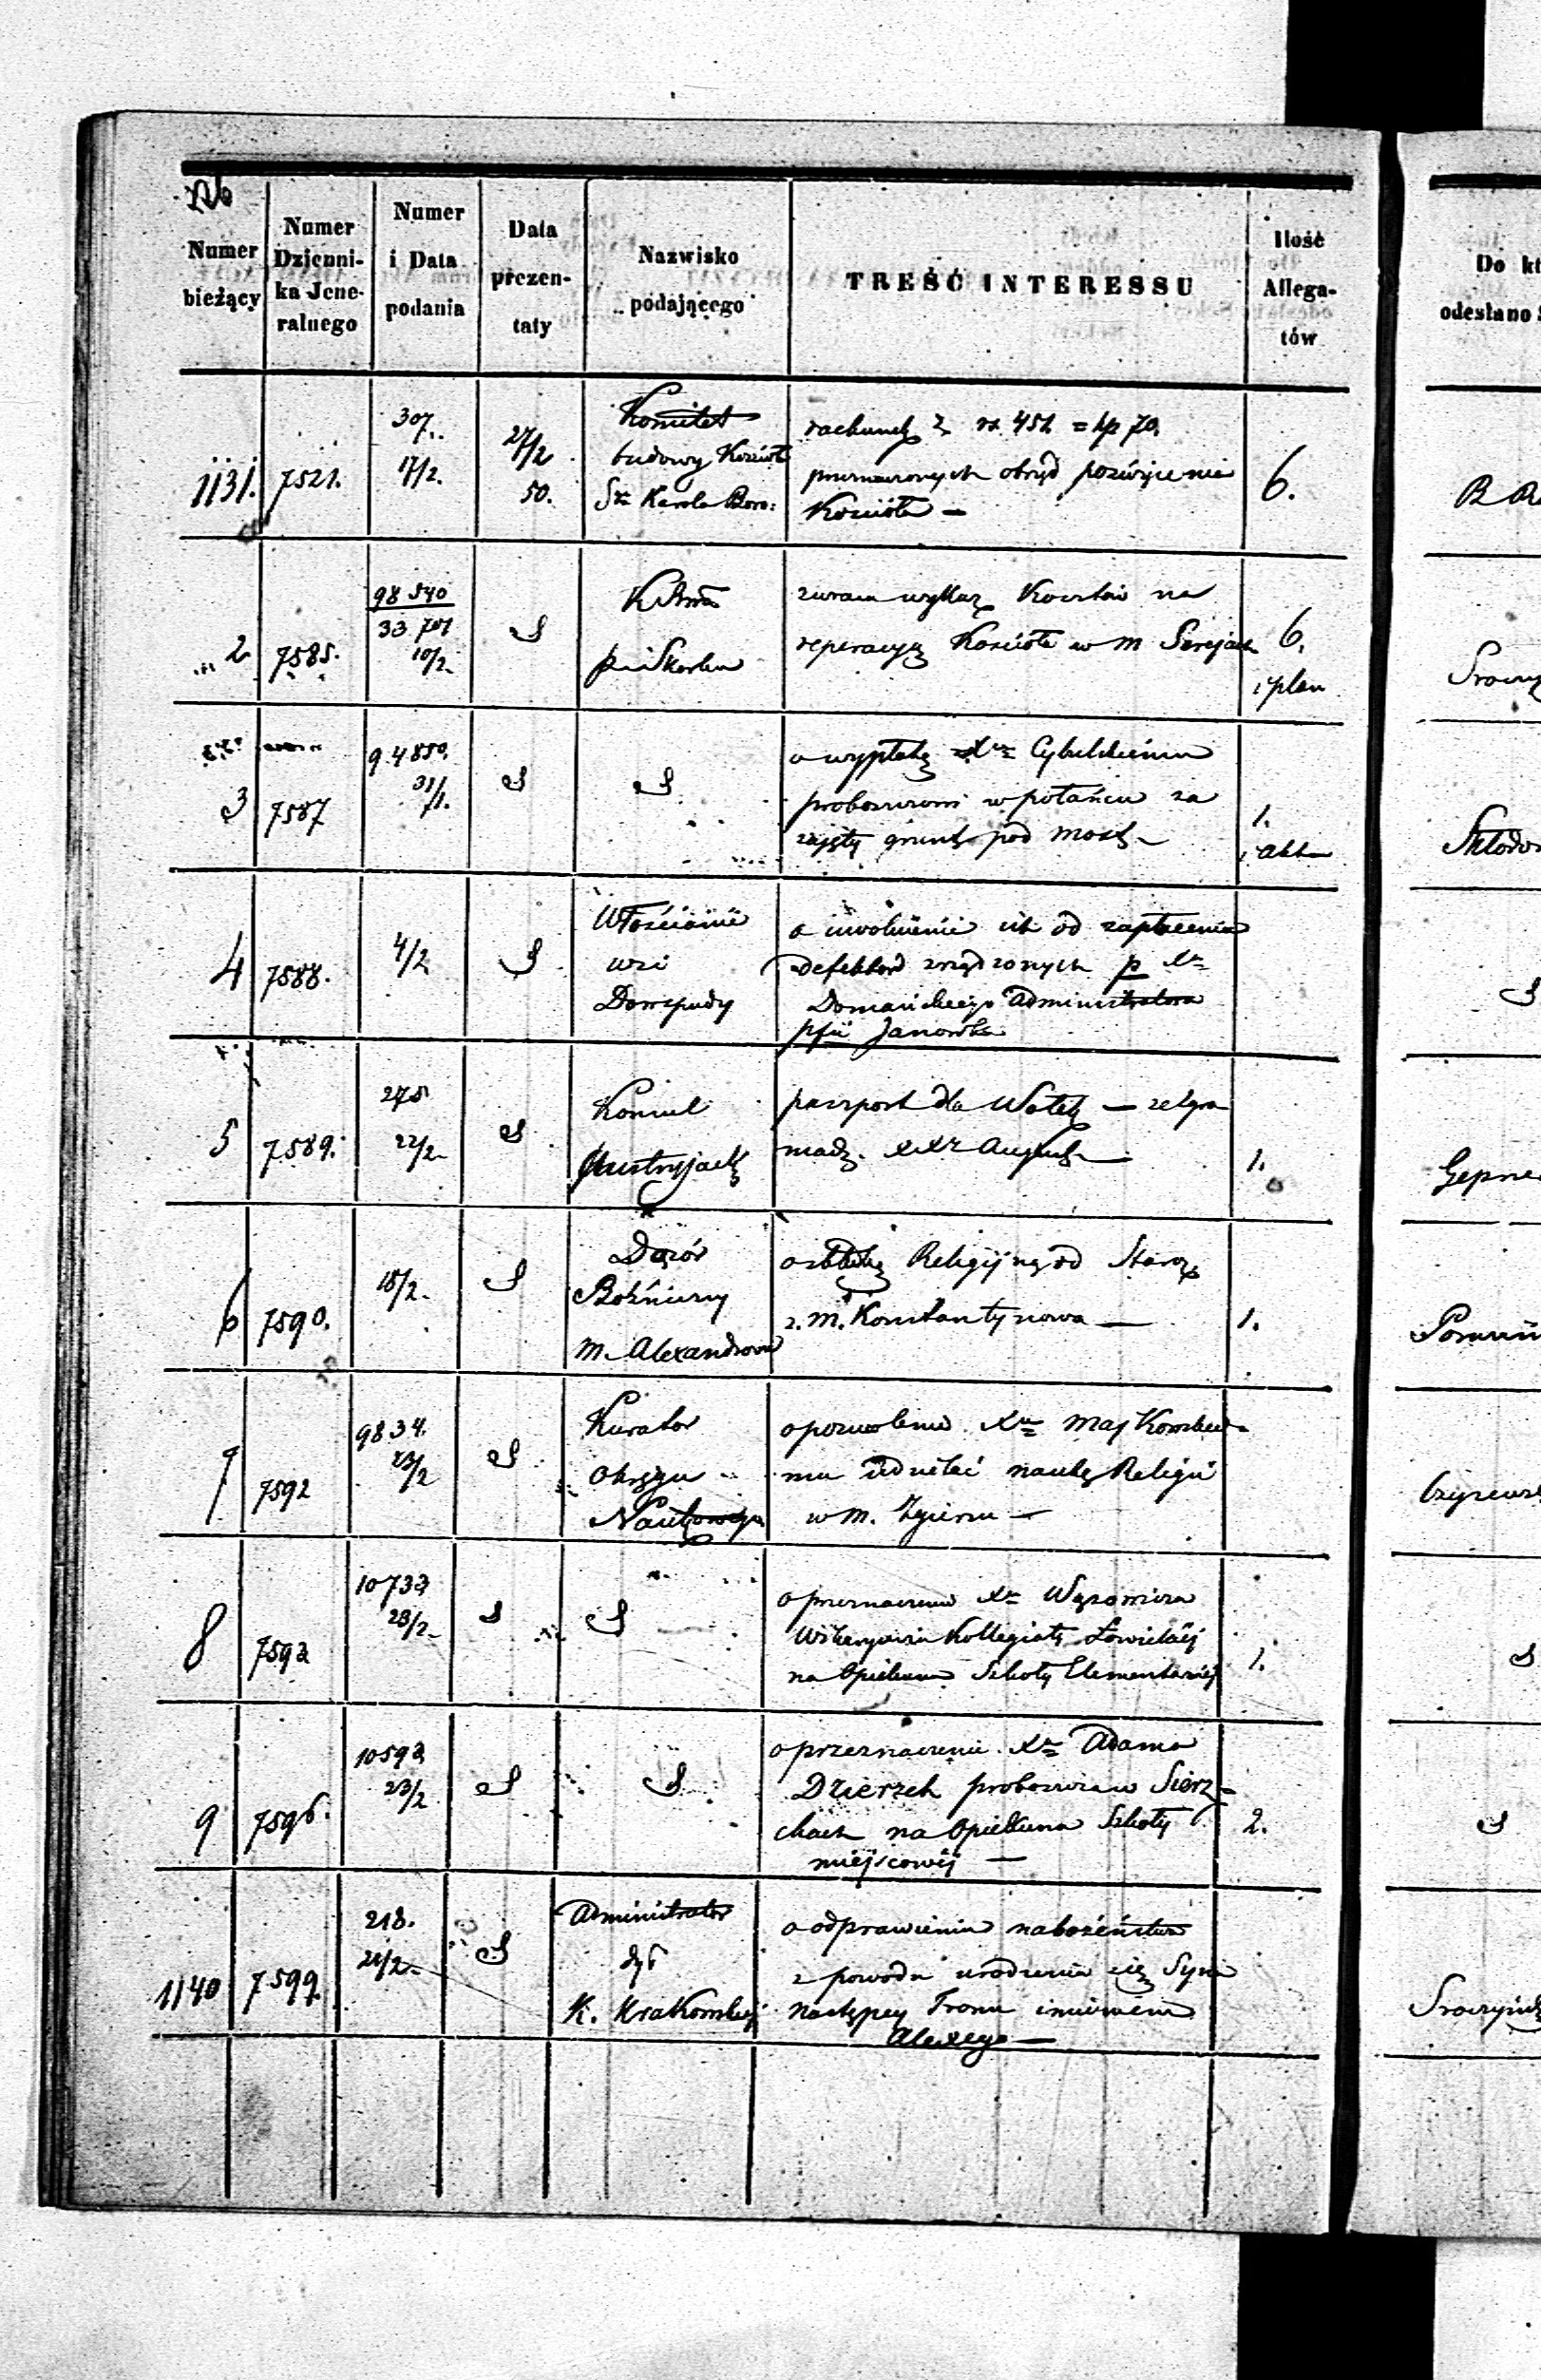 No
Numer
bieżący
Numer
Dzienni-
ka Jene-
ralnego
Numer
i Data
podania
Data
prezen-
taty
Nazwisko
podającego
TREŚĆ INTERESSU
Ilość
Allega-
tów
Do kt
odesłano
1131. 7521.
307.
17/2.
27/2
50.
Komitet
budowy Kościoła
Sgo Karola Boro:
rachunek z rs. 451 = kp 70.
przeznaczonych obrzęd poświęcenia
Kościoła —
6.
2 7585.
98 540
33 707
10/2
P. i Skarbu
zwraca wykaz Kosztów na
reperacyą Kościoła w m Serejach
6.
i plan
3 7587
94850.
31/1.
o wypłatę Xu Cybulskiemu
proboszczowi w Połańcu za
zajęty grunt pod most —
1.
i akta
4 7588.
4/2
Włościanie
wsi
Dowspudy
o uwolnienie ich od zapłacenia
defektów zrządzonych p Xa
Domańskiego Administratora
pfii Janówka
5 7589.
275
22/2
Konsul
Austryjacki
paszport dla — zelgro
madz. XX August —
1.
Gepne
6 7590.
18/2.
Dozór
Bóżniczny
m. Alexandrowa
o składkę Religijną od Staroz
z m. Konstantynowa —
1.
7 7592
9834.
23/2
Kurator
Okręgu
Naukowego
o pozwolenie Xu Majkowskie-
mu udzielać naukę Religii
w m. Zgierzu —
8 7593
10733
23/2
o przeznaczenie Xa Wązowicza
Wikaryusza Kollegiaty Łowickiej
na Opiekuna Szkoły Elementarnej
1.
9 7596.
10593
23/2
o przeznaczenie Xa Adama
Dzierzek proboszcza w Sierz-
chach na Opiekuna Szkoły
miejscowej —
2.
1140 7599.
218.
21/2
Administrator
dyó
K. Krakowskiej
o odprawieniu nabożeństwa
z powodu urodzenia się Syna
Następcy Tronu imieniem
Alexego —